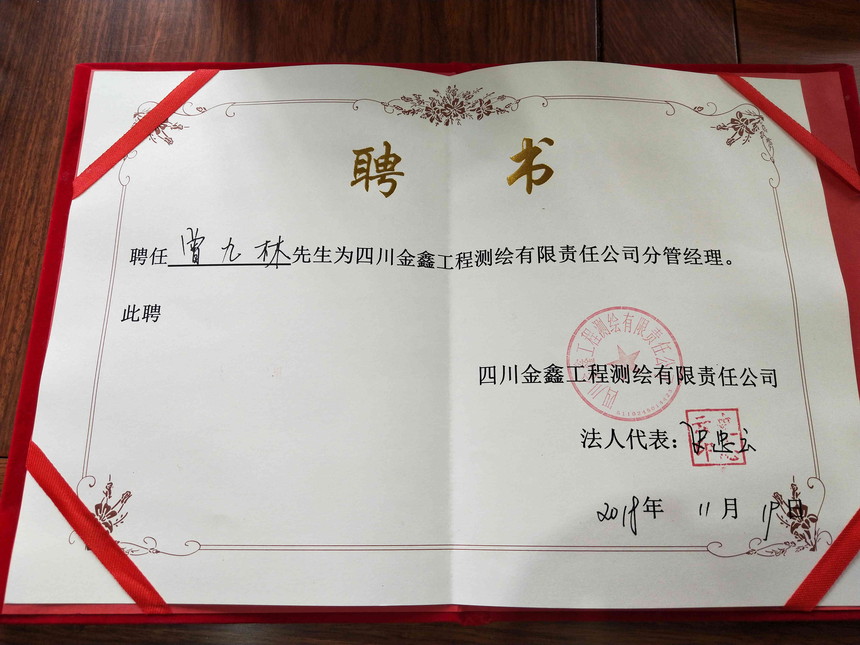 聘 书
聘任 曾九林 先生为四川金鑫工程测绘有限责任公司分管经理。
此聘
四川金鑫工程测绘有限责任公司
四川金鑫工程测绘有限责任公司
法人代表：
2018年 11月 日